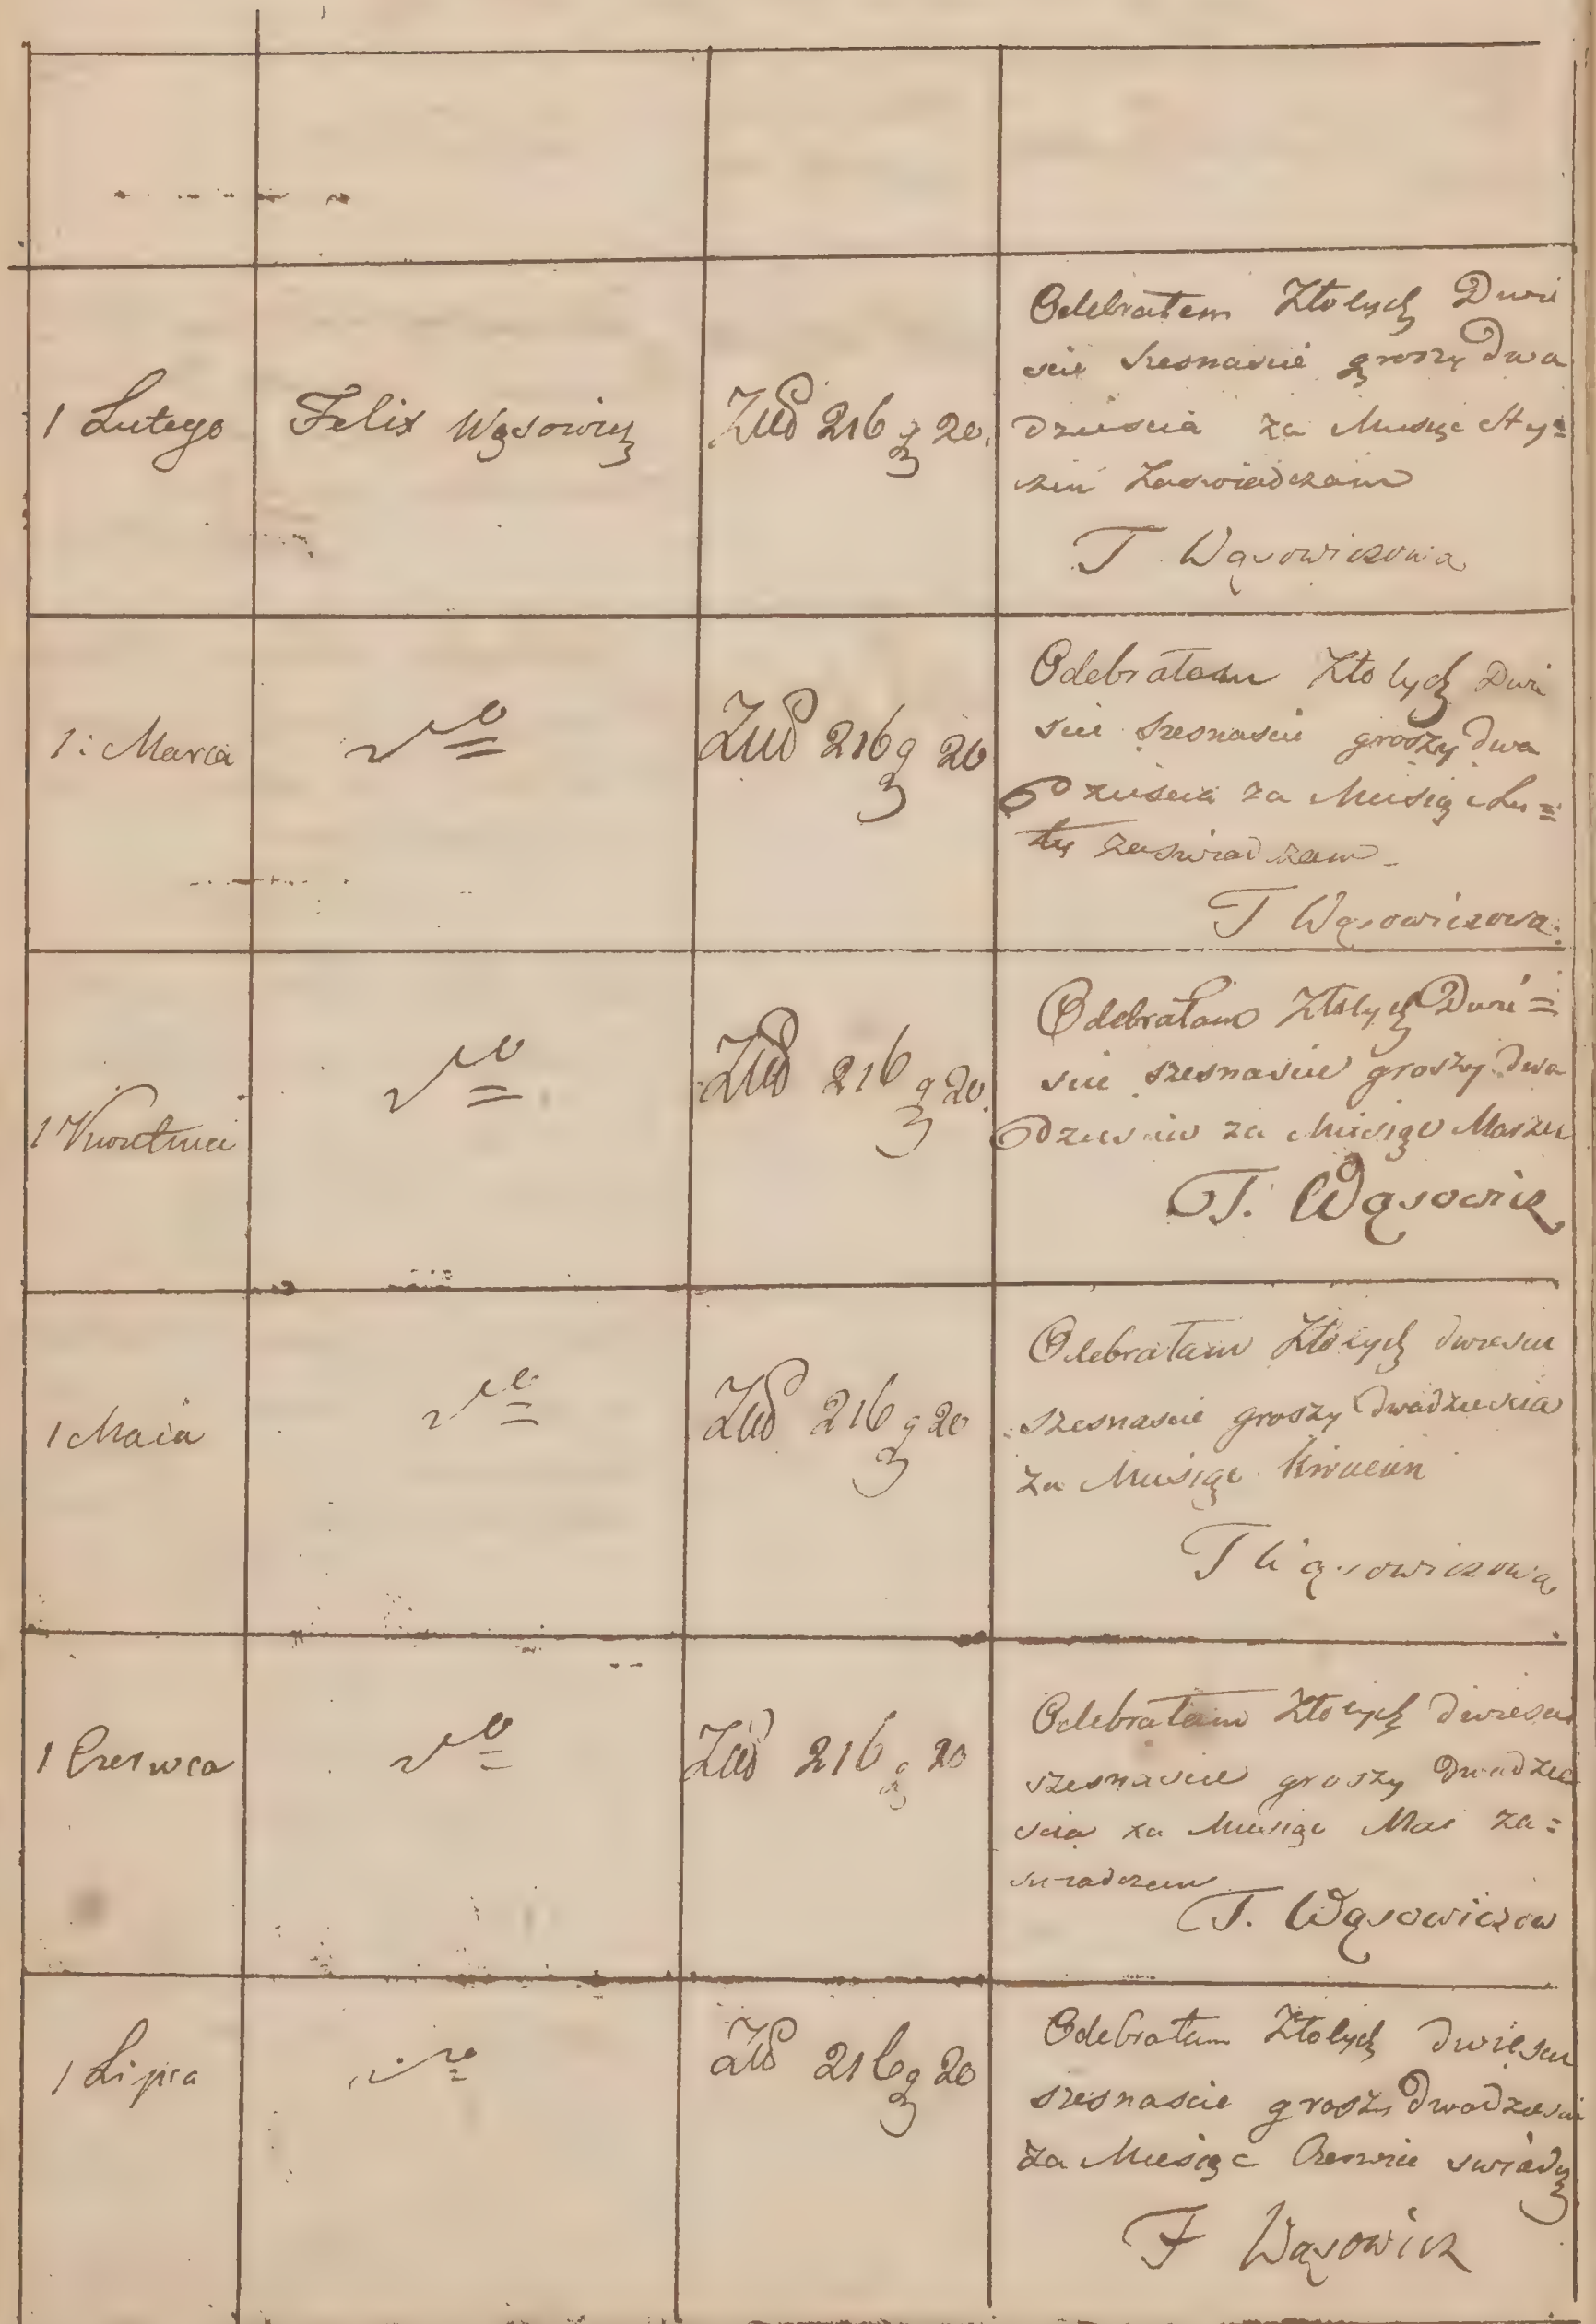 1 Lutego Felix Wąsowicz Złt 216 g 20.
Odebratem Złotych Dwie
scie szesnascie groszy Dwa
dziescia za Miesiąc Sty=
czeń Zaswiadczam
T Wąsowiczowa
1: Marca Złt 216 g 20
Odebratam Złotych Dwie
scie szesnascie groszy dwa
dziescia za Miesiąc Lu=
ty zaswiadczam
T Wąsowiczowa.
1 Kwietnia Złt 216 g 20.
Odebratam Złotych Dwie=
scie szesnascie groszy dwa
dziescia za Miesiąc Marzec
T. Wąsowicz
1 Maia Złt 216 g 20
Odebratam Złotych dwiescie
szesnascie groszy dwadziescia
za Miesiąc Kwiecien
T Wąsowiczowa
1 Czerwca Złt 216 g 20
Odebratam Złotych dwiescie
szesnascie groszy Dwadzie
scia za Miesiąc Mai za=
swiadczam
T. Wąsowiczow
1 Lipca Złt 216 g 20
Odebratam Złotych dwiescie
szesnascie groszy Dwadziescia
za Miesiąc Czerwiec swiadczę
F Wąsowicz